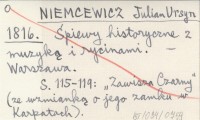 NIEMCEWICZ Julian Ursyn
1816. Śpiewy historyczne z
muzyką i rycinami. –
Warszawa.
S. 115-119: "Zawisza Czarny"
(ze wzmianką o jego zamku w
Karpatach).